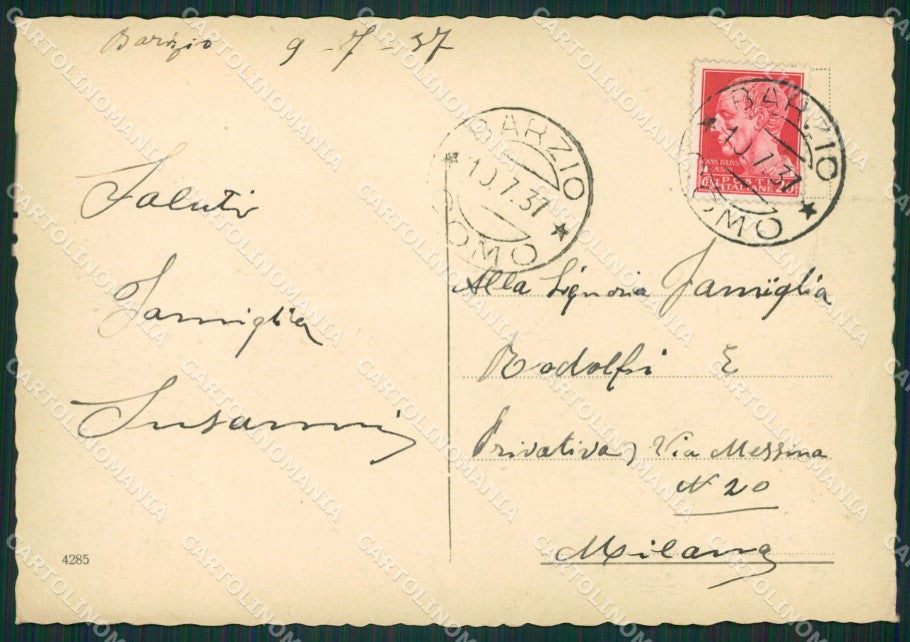 Barzio 9-7-37
BARZIO
COMO
10.7.37
BARZIO
COMO
10.7.37
POSTE
ITALIANE 20
Saluti
Famiglia
Susanni
Alla Signoria Famiglia
Rodolfi E
Privativa, Via Messina
N 20
Milano
4285
CARTOLINOMANIA